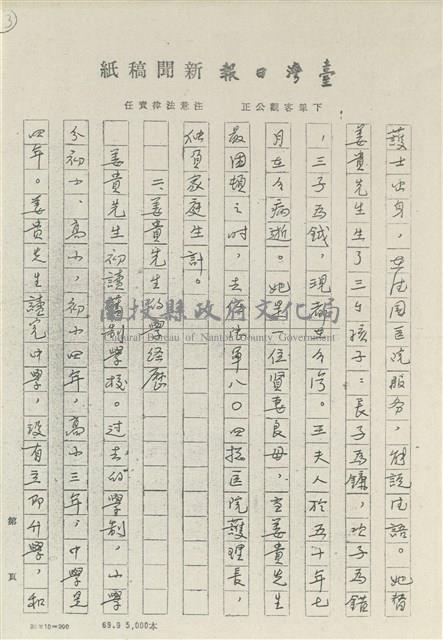 3
臺灣日報新聞稿紙
下筆客觀公正　注意法律責任
護士出身，在法國医院服务，能說法語。她替
姜貴先生生了三个孩子：長子為鎌，次子為錯
，三子為鉞，現都在台湾。王夫人於五十年七
月在台病逝。她是一位賢妻良母，在姜貴先生
最困頓之時，去陸軍八〇四捴医院護理長，
独負家庭生計。
二、姜貴先生的學經歷
姜貴先生初讀舊制學校。过去的學制，小學
分初小、高小，初小四年，高小三年，中學是
四年。姜貴先生讀完中學，沒有立即升學，和
第　頁
20×10=200
69.9 5,000本
南投縣政府文化局
Cultural Bureau of Nantou County Government